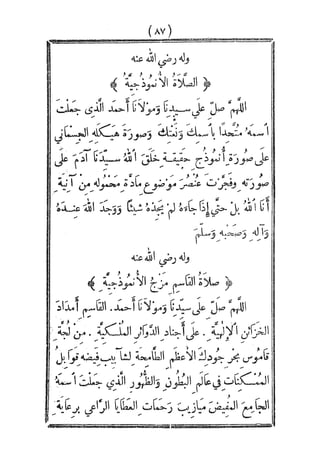 ( ٨٧ )
وله رضي الله عنه
﴿ الصَّلَاةُ الأُنْمُوذَجِيَّةُ ﴾
اللَّهُمَّ صَلِّ عَلَى سَيِّدِنَا وَمَوْلَانَا أَحْمَدَ الَّذِي جَعَلْتَ
اسْمَهُ مُتَّحِدًا بِاسْمِكَ وَنَعْتِكَ وَصُورَةَ هَيْكَلِهِ الجِسْمَانِي
عَلَى صُورَةِ أُنْمُوذَجِ حَقِيقَةِ خَلَقَ اللهُ سَيِّدَنَا آدَمَ عَلَى
صُورَتِهِ وَفَجَّرْتَ عُنْصُرَ مَوْضُوعِ مَادَّةِ مَحْمُولِهِ مِنْ آنِيَّةِ
أَنَا اللهُ بَلْ حَتَّى إِذَا جَاءَهُ لَمْ يَجِدْهُ شَيْئًا وَوَجَدَ اللهَ عِنْدَهُ
وَآلِهِ وَصَحْبِهِ وَسَلِّمْ
وله رضي الله عنه
﴿ صَلَاةُ القَاسِمِ مَزْجُ الأُنْمُوذَجِيَّةِ ﴾
اللَّهُمَّ صَلِّ عَلَى سَيِّدِنَا وَمَوْلَانَا أَحْمَدَ. القَاسِمِ أَمْدَادَ
الخَزَائِنِ الإِلَهِيَّةِ. عَلَى أَجْنَادِ الدَّوَائِرِ المُلْكِيَّةِ. مِنْ لُجَّةِ
قَامُوسِ بَحْرِ جُودِكَ الأَعْظَمِ الطَّامِحَةِ لِشَآبِيبِ فَيْضِهِ قَوَابِلُ
المُمْكِنَاتِ فِي عَالَمِ البُطُونِ وَالظُّهُورِ الَّذِي جَعَلْتَ اسْمَهُ
الجَامِعَ المُفِيضَ مَيَازِيبَ رَحَمَاتِ العَطَايَا الرَّاعِي بِرِعَايَةِ